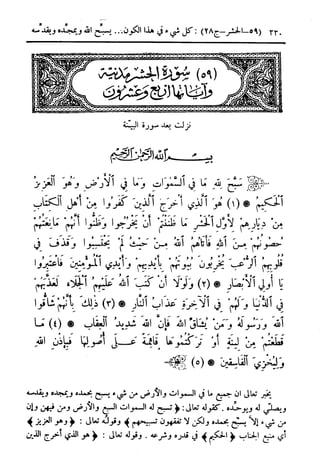 ٢٣٠ (٥٩–الحشر–ج٢٨) : كل شيء في هذا الكون... يسبّح الله ويمجّده ويقدّسه
(٥٩) سُورَةُ الحَشْرِ مَدَنِيَّة
وَآيَاتُهَا أَرْبَعٌ وَعِشْرُونَ
نزلت بعد سورة البيّنة
بِسْمِ اللهِ الرَّحْمنِ الرَّحِيمِ
سَبَّحَ لِلهِ مَا فِي السَّمٰوَاتِ وَمَا فِي الأَرْضِ وَهُوَ العَزِيزُ
الحَكِيمُ * (١) هُوَ الَّذِي أَخْرَجَ الَّذِينَ كَفَرُوا مِنْ أَهْلِ الكِتَابِ
مِنْ دِيَارِهِمْ لِأَوَّلِ الحَشْرِ مَا ظَنَنْتُمْ أَنْ يَخْرُجُوا وَظَنُّوا أَنَّهُمْ مَانِعَتُهُمْ
حُصُونُهُمْ مِنَ اللهِ فَأَتَاهُمُ اللهُ مِنْ حَيْثُ لَمْ يَحْتَسِبُوا وَقَذَفَ فِي
قُلُوبِهِمُ الرُّعْبَ يُخْرِبُونَ بُيُوتَهُمْ بِأَيْدِيهِمْ وَأَيْدِي المُؤْمِنِينَ فَاعْتَبِرُوا
يَا أُولِي الأَبْصَارِ * (٢) وَلَوْلَا أَنْ كَتَبَ اللهُ عَلَيْهِمُ الجَلَاءَ لَعَذَّبَهُمْ
فِي الدُّنْيَا وَلَهُمْ فِي الآخِرَةِ عَذَابُ النَّارِ * (٣) ذٰلِكَ بِأَنَّهُمْ شَاقُّوا
اللهَ وَرَسُولَهُ وَمَنْ يُشَاقِّ اللهَ فَإِنَّ اللهَ شَدِيدُ العِقَابِ * (٤) مَا
قَطَعْتُمْ مِنْ لِينَةٍ أَوْ تَرَكْتُمُوهَا قَائِمَةً عَلَى أُصُولِهَا فَبِإِذْنِ اللهِ
وَلِيُخْزِيَ الفَاسِقِينَ * (٥)
يخبر تعالى ان جميع ما في السموات والأرض من شيء يسبح بحمده ويمجده ويقدسه
ويصلي له ويوحده . كقوله تعالى : ﴿ تسبح له السموات السبع والأرض ومن فيهن وإن
من شيء إلاّ يسبّح بحمده ولكن لا تفقهون تسبيحهم ﴾ وقوله تعالى : ﴿ وهو العزيز ﴾
أي منيع الجناب ﴿ الحكيم ﴾ في قدره وشرعه . وقوله تعالى : ﴿ هو الذي أخرج الذين